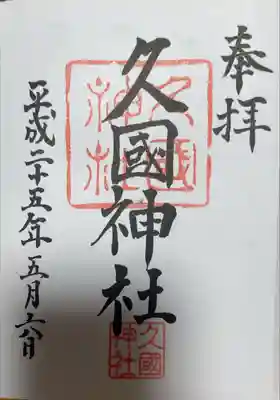 奉拝
久國神社
久國神社
平成二十五年五月六日
久國神社